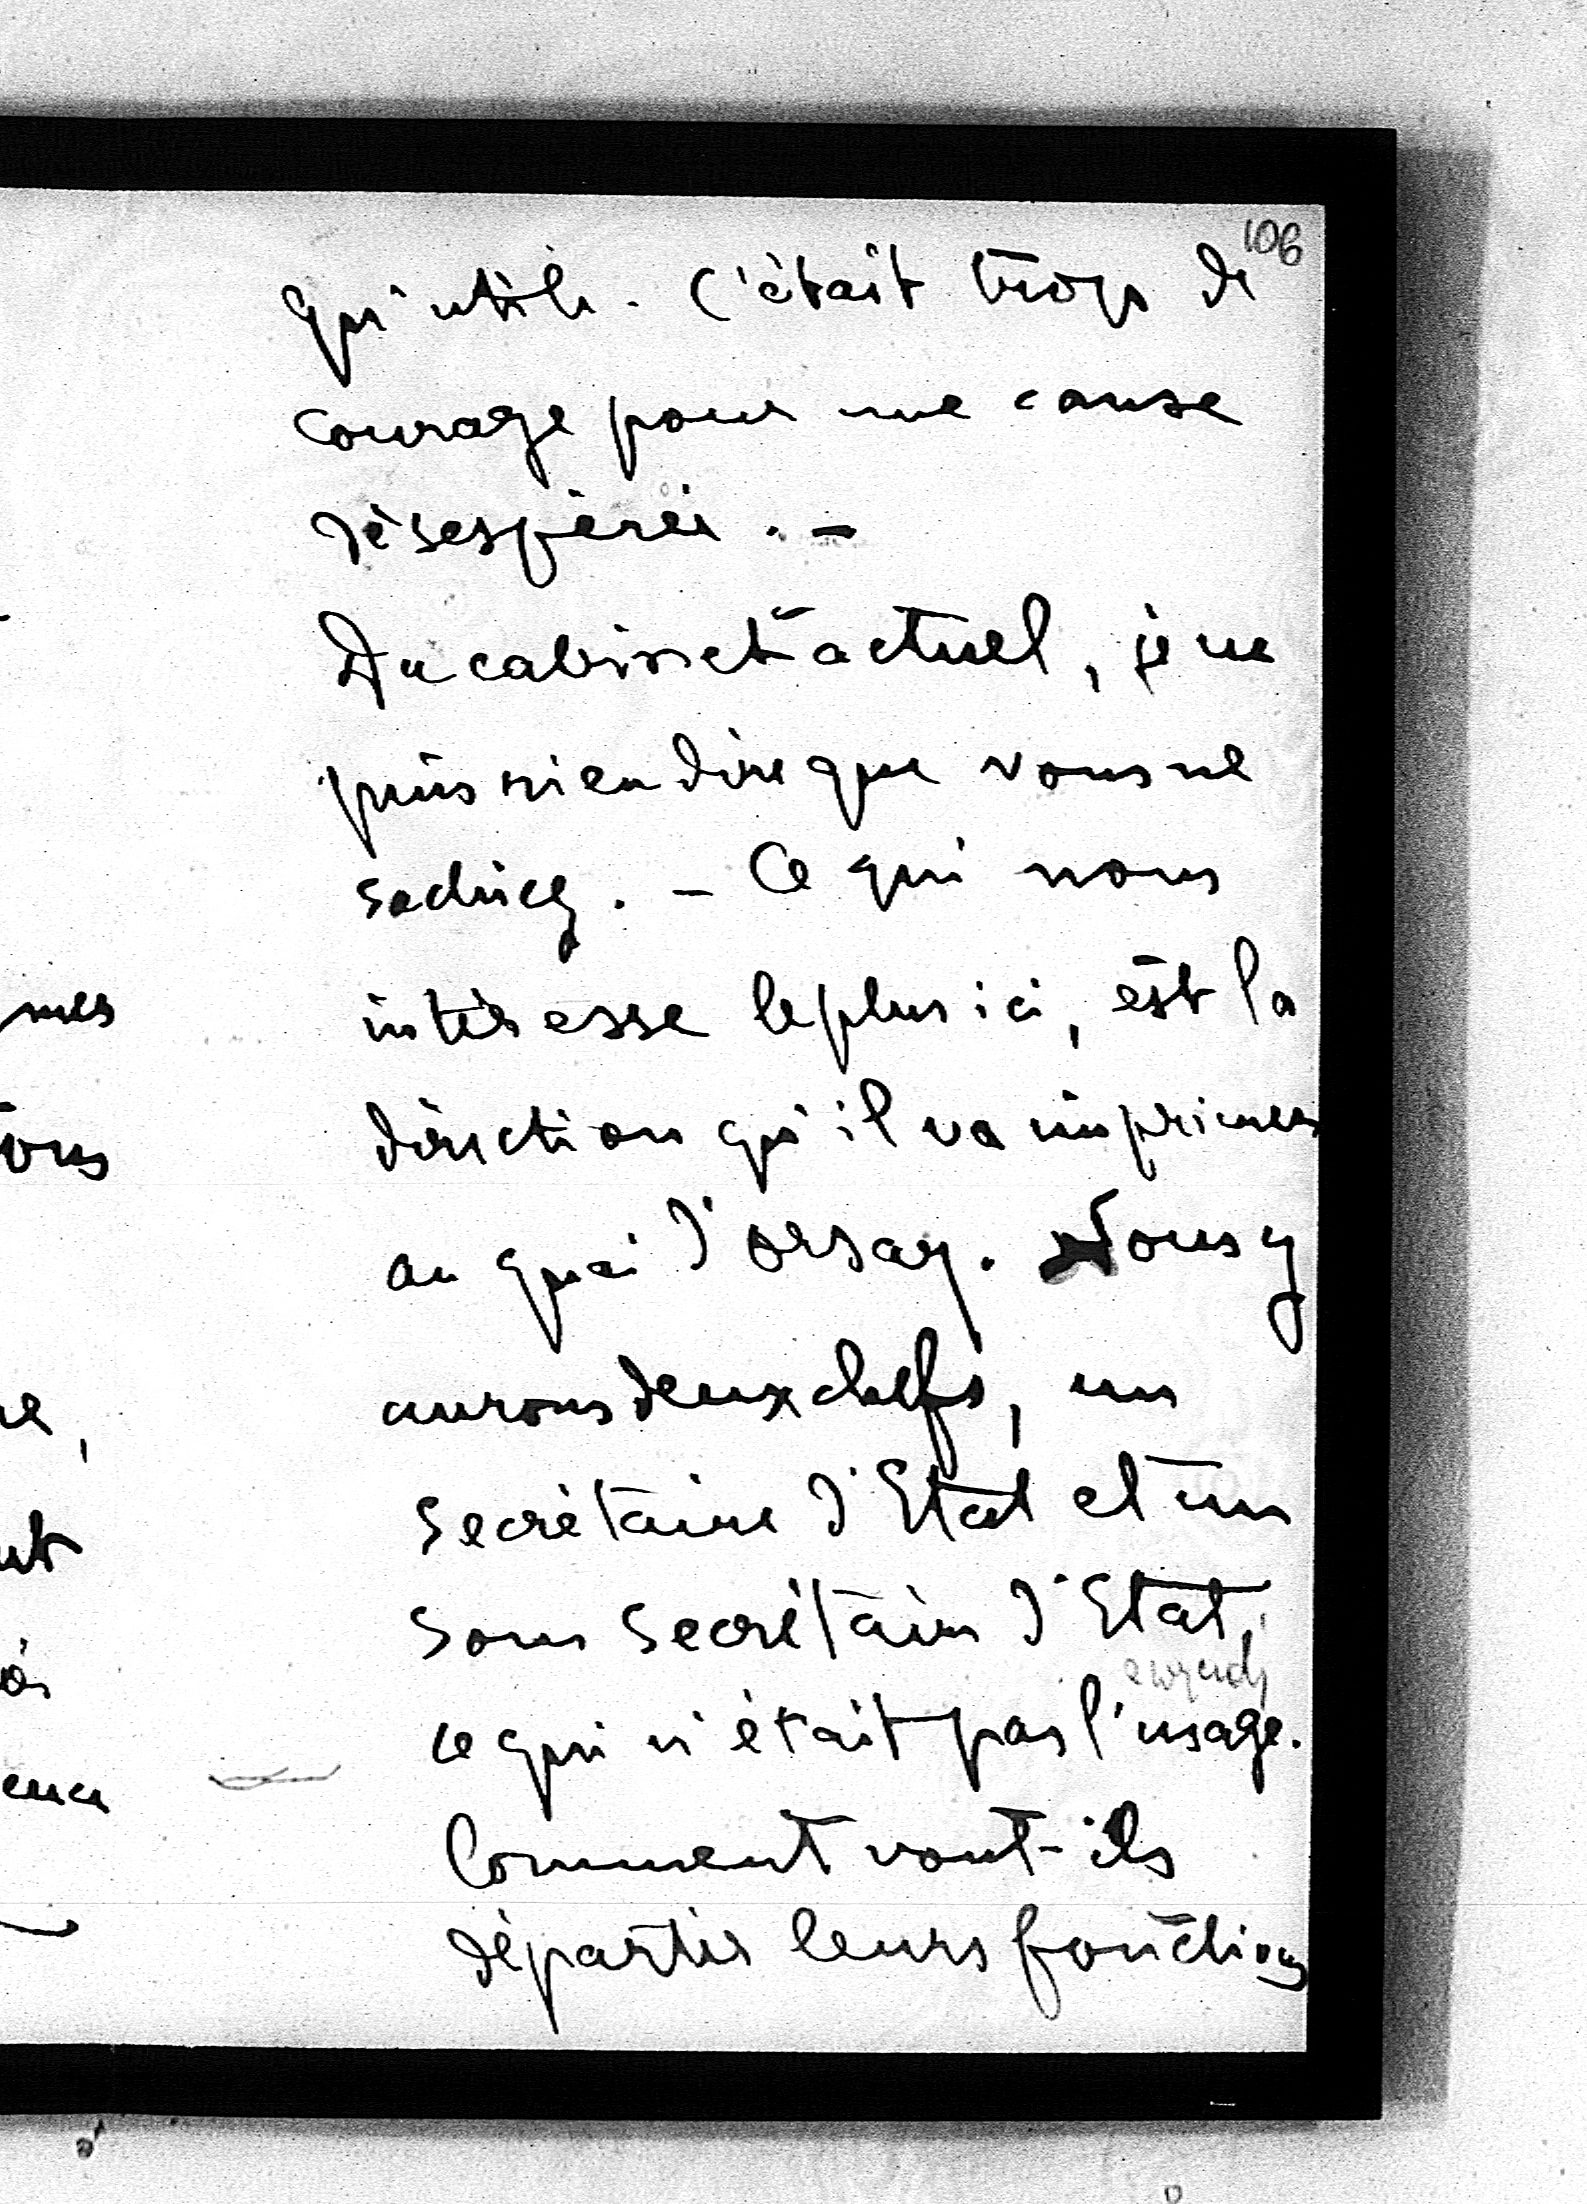 106
qu'utile. C'était trop de
courage pour une cause
désespérée. –
Du cabinet actuel, je ne
puis rien dire que vous ne
sachiez. – Ce qui nous
intéresse le plus ici, est la
direction qu'il va imprimer
au quai d'Orsay. Nous y
aurons deux chefs, un
Secrétaire d'Etat et un
Sous Secrétaire d'Etat,
ce qui n'était pas l'usage.
Comment vont-ils
départir leurs fonctions
mes
ons